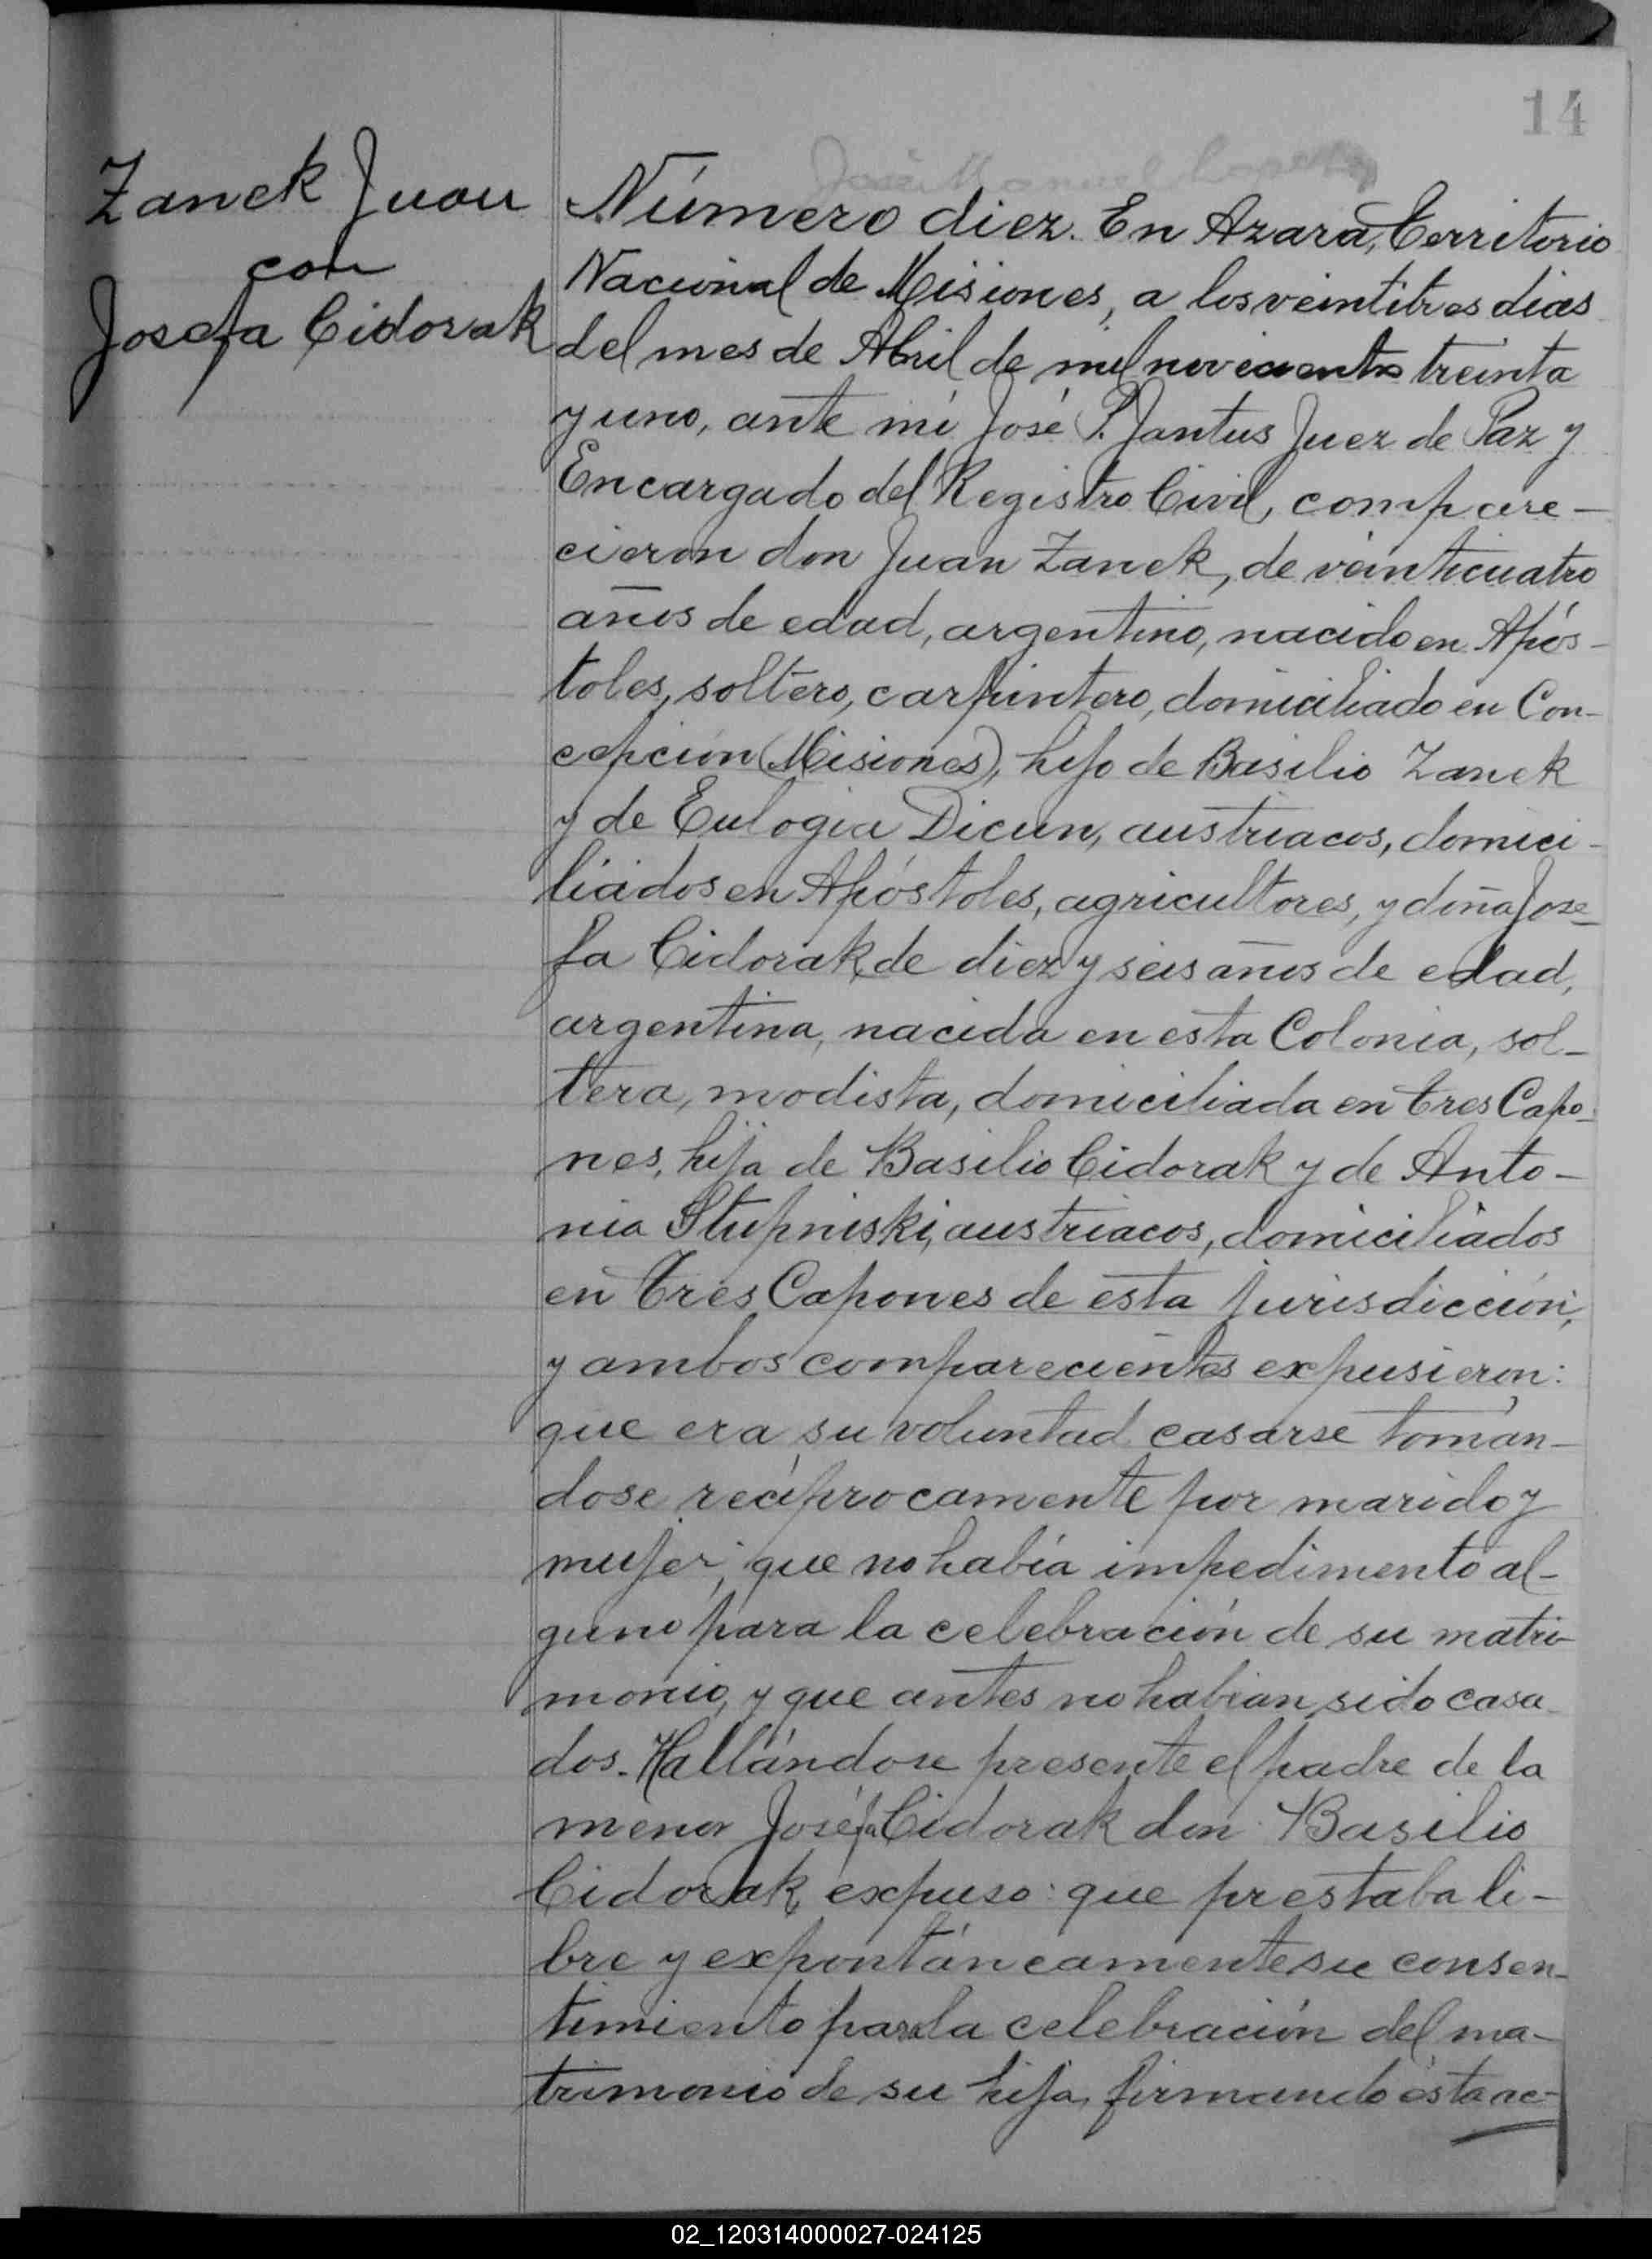 14
Zanek Juan
con
Josefa Cidorak
José Manuel
Número diez. En Azara, Territorio
Nacional de Misiones, a los veintitres dias
del mes de Abril de mil novecientos treinta
y uno, ante mi José P. Jantus Juez de Paz y
Encargado del Registro Civil, compare-
cieron don Juan Zanek, de veinticuatro
años de edad, argentino, nacido en Após-
toles, soltero, carpintero, domiciliado en Con-
cepción (Misiones), hijo de Basilio Zanek
y de Eulogia Dicun, austriacos, domici-
liados en Apóstoles, agricultores, y doña Jose-
fa Cidorak, de diez y seis años de edad,
argentina, nacida en esta Colonia, sol-
tera, modista, domiciliada en Tres Capo-
nes, hija de Basilio Cidorak y de Anto-
nia Stupniski, austriacos, domiciliados
en Tres Capones de esta jurisdicción,
y ambos comparecientes expusieron:
que era su voluntad casarse tomán-
dose recíprocamente por marido y
mujer; que no había impedimento al-
guno para la celebración de su matri-
monio, y que antes no habían sido casa-
dos. Hallándose presente el padre de la
menor Joséfa Cidorak don Basilio
Cidorak, expuso: que prestaba li-
bre y expontáneamente su consen-
timiento para la celebración del ma-
trimonio de su hija, firmando ésta ac-
02_120314000027-024125